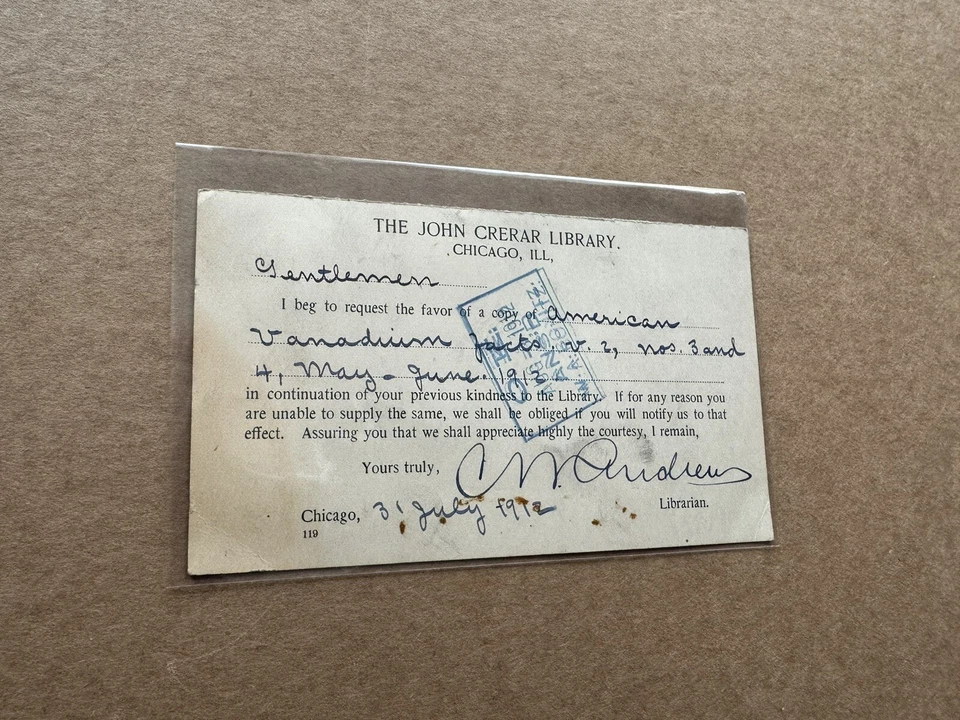 THE JOHN CRERAR LIBRARY.
CHICAGO, ILL,
Gentlemen
I beg to request the favor of a copy of American
Vanadium Facts, v. 2, nos. 3 and
4, May - June. 1912
in continuation of your previous kindness to the Library. If for any reason you
are unable to supply the same, we shall be obliged if you will notify us to that
effect. Assuring you that we shall appreciate highly the courtesy, I remain,
Yours truly, C W. Andrews
Librarian.
Chicago, 31 July 1912
119